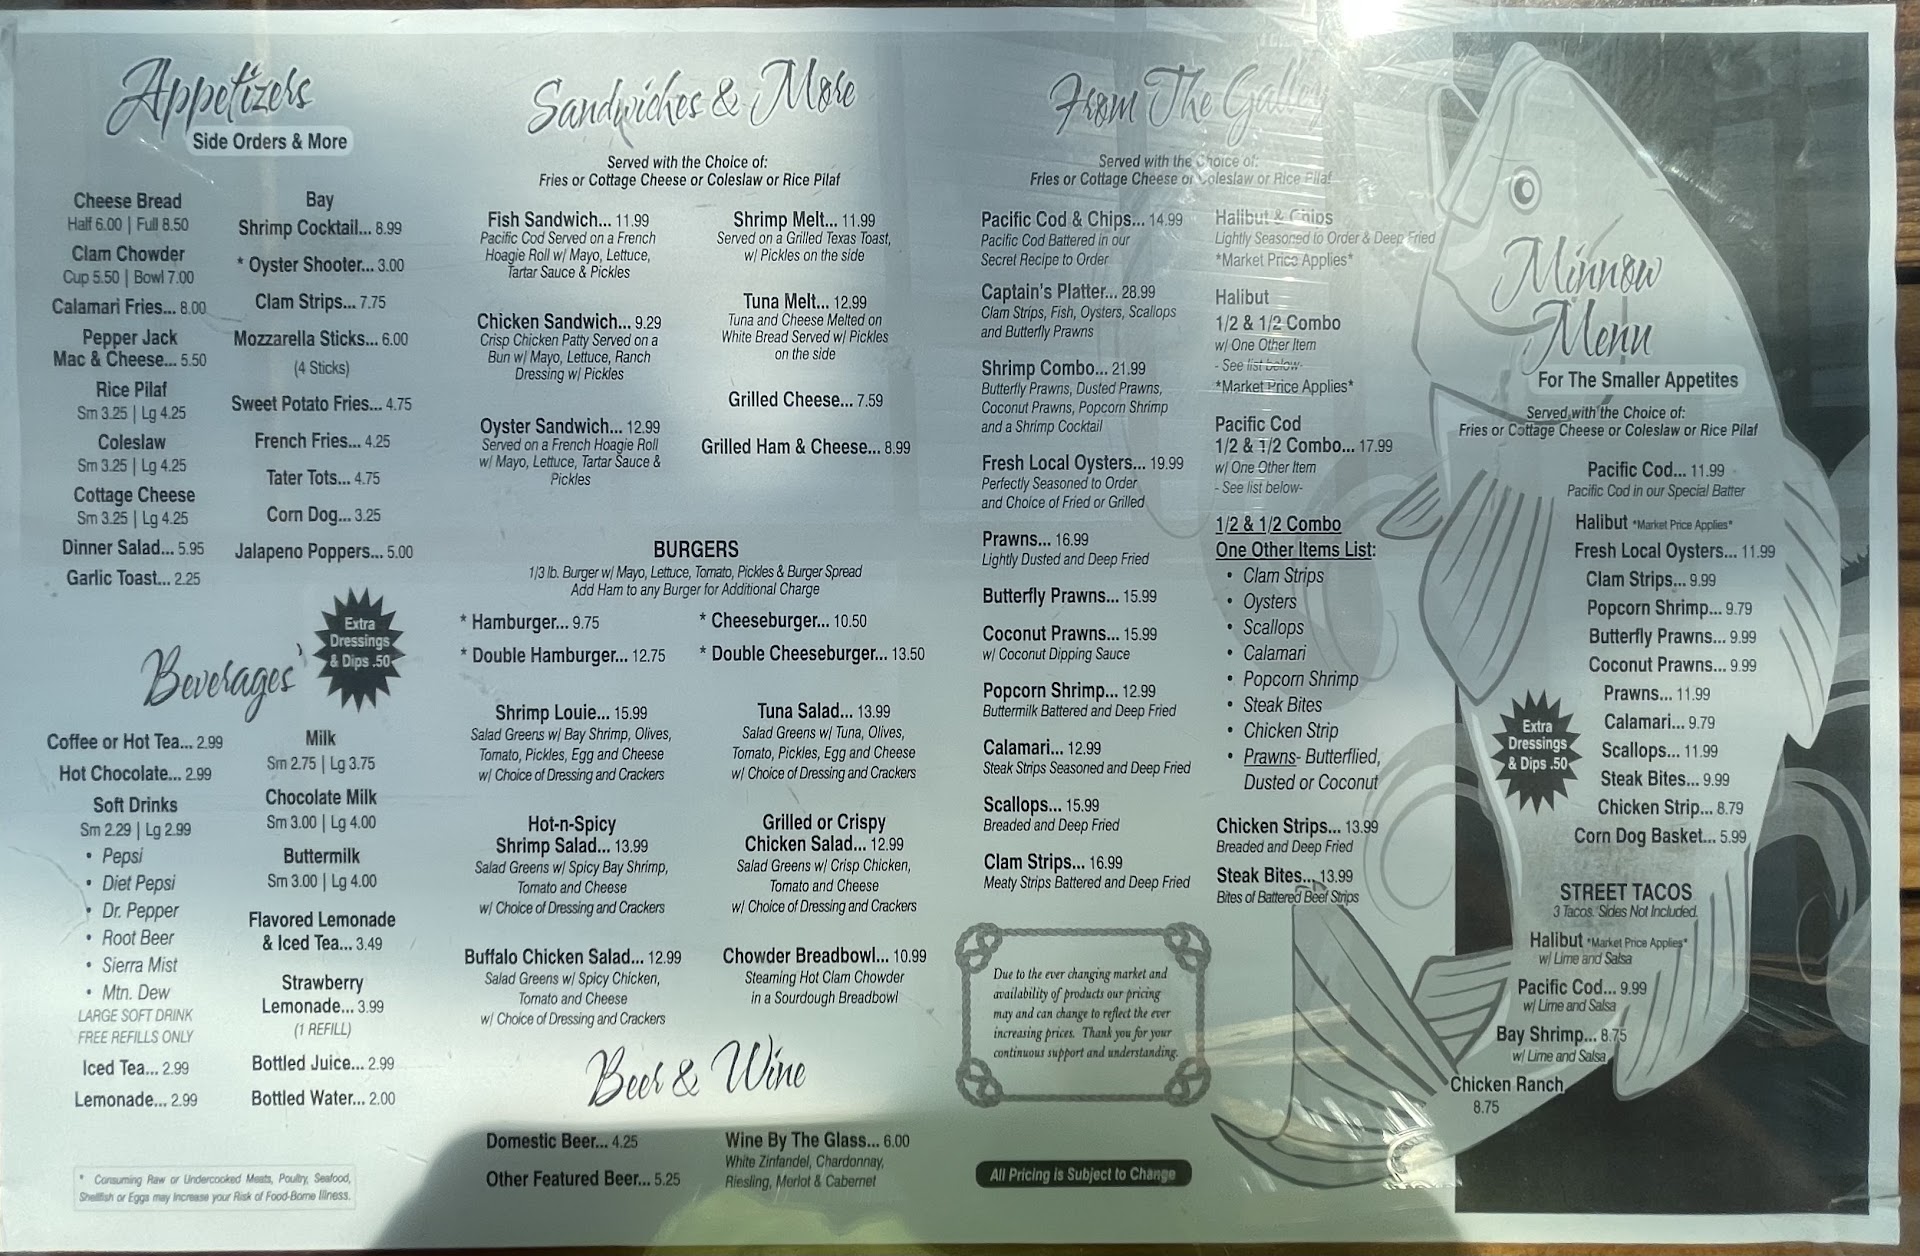 Appetizers
Side Orders & More
Cheese Bread
Half 6.00 | Full 8.50
Clam Chowder
Cup 5.50 | Bowl 7.00
Calamari Fries... 8.00
Pepper Jack
Mac & Cheese... 5.50
Rice Pilaf
Sm 3.25 | Lg 4.25
Coleslaw
Sm 3.25 | Lg 4.25
Cottage Cheese
Sm 3.25 | Lg 4.25
Dinner Salad... 5.95
Garlic Toast... 2.25
Bay
Shrimp Cocktail... 8.99
* Oyster Shooter... 3.00
Clam Strips... 7.75
Mozzarella Sticks... 6.00
(4 Sticks)
Sweet Potato Fries... 4.75
French Fries... 4.25
Tater Tots... 4.75
Corn Dog... 3.25
Jalapeno Poppers... 5.00
Extra
Dressings
& Dips .50
Beverages
Coffee or Hot Tea... 2.99
Hot Chocolate... 2.99
Soft Drinks
Sm 2.29 | Lg 2.99
• Pepsi
• Diet Pepsi
• Dr. Pepper
• Root Beer
• Sierra Mist
• Mtn. Dew
LARGE SOFT DRINK
FREE REFILLS ONLY
Iced Tea... 2.99
Lemonade... 2.99
Milk
Sm 2.75 | Lg 3.75
Chocolate Milk
Sm 3.00 | Lg 4.00
Buttermilk
Sm 3.00 | Lg 4.00
Flavored Lemonade
& Iced Tea... 3.49
Strawberry
Lemonade... 3.99
(1 REFILL)
Bottled Juice... 2.99
Bottled Water... 2.00
* Consuming Raw or Undercooked Meats, Poultry, Seafood,
Shellfish or Eggs may Increase your Risk of Food-Borne Illness.
Sandwiches & More
Served with the Choice of:
Fries or Cottage Cheese or Coleslaw or Rice Pilaf
Fish Sandwich... 11.99
Pacific Cod Served on a French
Hoagie Roll w/ Mayo, Lettuce,
Tartar Sauce & Pickles
Chicken Sandwich... 9.29
Crisp Chicken Patty Served on a
Bun w/ Mayo, Lettuce, Ranch
Dressing w/ Pickles
Oyster Sandwich... 12.99
Served on a French Hoagie Roll
w/ Mayo, Lettuce, Tartar Sauce &
Pickles
Shrimp Melt... 11.99
Served on a Grilled Texas Toast,
w/ Pickles on the side
Tuna Melt... 12.99
Tuna and Cheese Melted on
White Bread Served w/ Pickles
on the side
Grilled Cheese... 7.59
Grilled Ham & Cheese... 8.99
BURGERS
1/3 lb. Burger w/ Mayo, Lettuce, Tomato, Pickles & Burger Spread
Add Ham to any Burger for Additional Charge
* Hamburger... 9.75
* Double Hamburger... 12.75
* Cheeseburger... 10.50
* Double Cheeseburger... 13.50
Shrimp Louie... 15.99
Salad Greens w/ Bay Shrimp, Olives,
Tomato, Pickles, Egg and Cheese
w/ Choice of Dressing and Crackers
Hot-n-Spicy
Shrimp Salad... 13.99
Salad Greens w/ Spicy Bay Shrimp,
Tomato and Cheese
w/ Choice of Dressing and Crackers
Buffalo Chicken Salad... 12.99
Salad Greens w/ Spicy Chicken,
Tomato and Cheese
w/ Choice of Dressing and Crackers
Tuna Salad... 13.99
Salad Greens w/ Tuna, Olives,
Tomato, Pickles, Egg and Cheese
w/ Choice of Dressing and Crackers
Grilled or Crispy
Chicken Salad... 12.99
Salad Greens w/ Crisp Chicken,
Tomato and Cheese
w/ Choice of Dressing and Crackers
Chowder Breadbowl... 10.99
Steaming Hot Clam Chowder
in a Sourdough Breadbowl
Beer & Wine
Domestic Beer... 4.25
Other Featured Beer... 5.25
Wine By The Glass... 6.00
White Zinfandel, Chardonnay,
Riesling, Merlot & Cabernet
From The Galley
Served with the Choice of:
Fries or Cottage Cheese or Coleslaw or Rice Pilaf
Pacific Cod & Chips... 14.99
Pacific Cod Battered in our
Secret Recipe to Order
Captain's Platter... 28.99
Clam Strips, Fish, Oysters, Scallops
and Butterfly Prawns
Shrimp Combo... 21.99
Butterfly Prawns, Dusted Prawns,
Coconut Prawns, Popcorn Shrimp
and a Shrimp Cocktail
Fresh Local Oysters... 19.99
Perfectly Seasoned to Order
and Choice of Fried or Grilled
Prawns... 16.99
Lightly Dusted and Deep Fried
Butterfly Prawns... 15.99
Coconut Prawns... 15.99
w/ Coconut Dipping Sauce
Popcorn Shrimp... 12.99
Buttermilk Battered and Deep Fried
Calamari... 12.99
Steak Strips Seasoned and Deep Fried
Scallops... 15.99
Breaded and Deep Fried
Clam Strips... 16.99
Meaty Strips Battered and Deep Fried
Halibut & Chips
Lightly Seasoned to Order & Deep Fried
*Market Price Applies*
Halibut
1/2 & 1/2 Combo
w/ One Other Item
- See list below-
*Market Price Applies*
Pacific Cod
1/2 & 1/2 Combo... 17.99
w/ One Other Item
- See list below-
1/2 & 1/2 Combo
One Other Items List:
• Clam Strips
• Oysters
• Scallops
• Calamari
• Popcorn Shrimp
• Steak Bites
• Chicken Strip
• Prawns- Butterflied,
Dusted or Coconut
Chicken Strips... 13.99
Breaded and Deep Fried
Steak Bites... 13.99
Bites of Battered Beef Strips
Due to the ever changing market and
availability of products our pricing
may and can change to reflect the ever
increasing prices. Thank you for your
continuous support and understanding.
All Pricing is Subject to Change
Minnow
Menu
For The Smaller Appetites
Served with the Choice of:
Fries or Cottage Cheese or Coleslaw or Rice Pilaf
Pacific Cod... 11.99
Pacific Cod in our Special Batter
Halibut *Market Price Applies*
Fresh Local Oysters... 11.99
Clam Strips... 9.99
Popcorn Shrimp... 9.79
Butterfly Prawns... 9.99
Coconut Prawns... 9.99
Prawns... 11.99
Calamari... 9.79
Scallops... 11.99
Steak Bites... 9.99
Chicken Strip... 8.79
Corn Dog Basket... 5.99
Extra
Dressings
& Dips .50
STREET TACOS
3 Tacos. Sides Not Included.
Halibut *Market Price Applies*
w/ Lime and Salsa
Pacific Cod... 9.99
w/ Lime and Salsa
Bay Shrimp... 8.75
w/ Lime and Salsa
Chicken Ranch
8.75